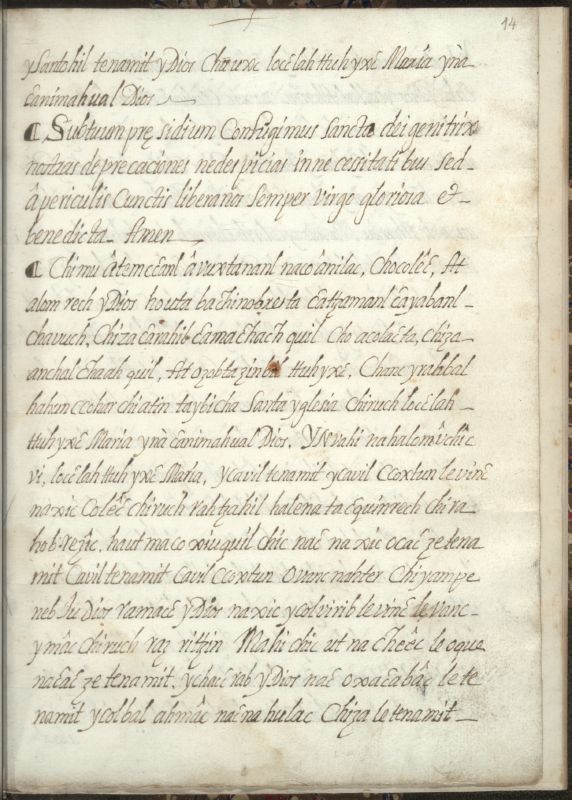 14
ySantohil tenamit yDios Chauxc locēlah ttuhyxē María yna
canimahual Dios
¶ Subtuum pręsidium Confugimus Sancta dei genitrix
nostras deprecaciones nedespicias in necessitatibus sed
â periculis Cunctis liberanos Semper Virgo gloriosa &
benedicta Amen
¶ Chinu âtemcēanl âvuxtananl nacoânilac, Chocolēē, At
alom rech yDios houta bachinobresta catzamanl cayabanl
chavuch, Chiza carahib camachach quil Cho acolacta, chiza
anchal chaah quil, At ozobtazinbil ttuhyxē, Chancyrahbal
hahun czohar chiatin taybicha Santa yglesia Chiruch locēlah
ttuhyxē Maria yna canimahual Dios. YNvahi nahalomvchic
vi, locēlah ttuh yxē Maria, ycavil tenamit ycavil Ccoxtun levinē
naxic Colēē chiruch rahtzahil halena tacquinrech chira
hob: rejic, haut maco xiuquil chic nac naxic ocac ze tena
mit Cavil tenamit Cavil Ccoxtun ovanc nahter Chiyampe
neb Ju Dios ramacē yDios naxic ycolvirib levinē levanc
ymâc chiruch raz ritzin Mahi chic ut na cheēc leoque
nacac ze tenamit, ychac rab yDios nac oxacabâc lete
namit ycolbal ahmâc nac na hulac Chiza letenamit